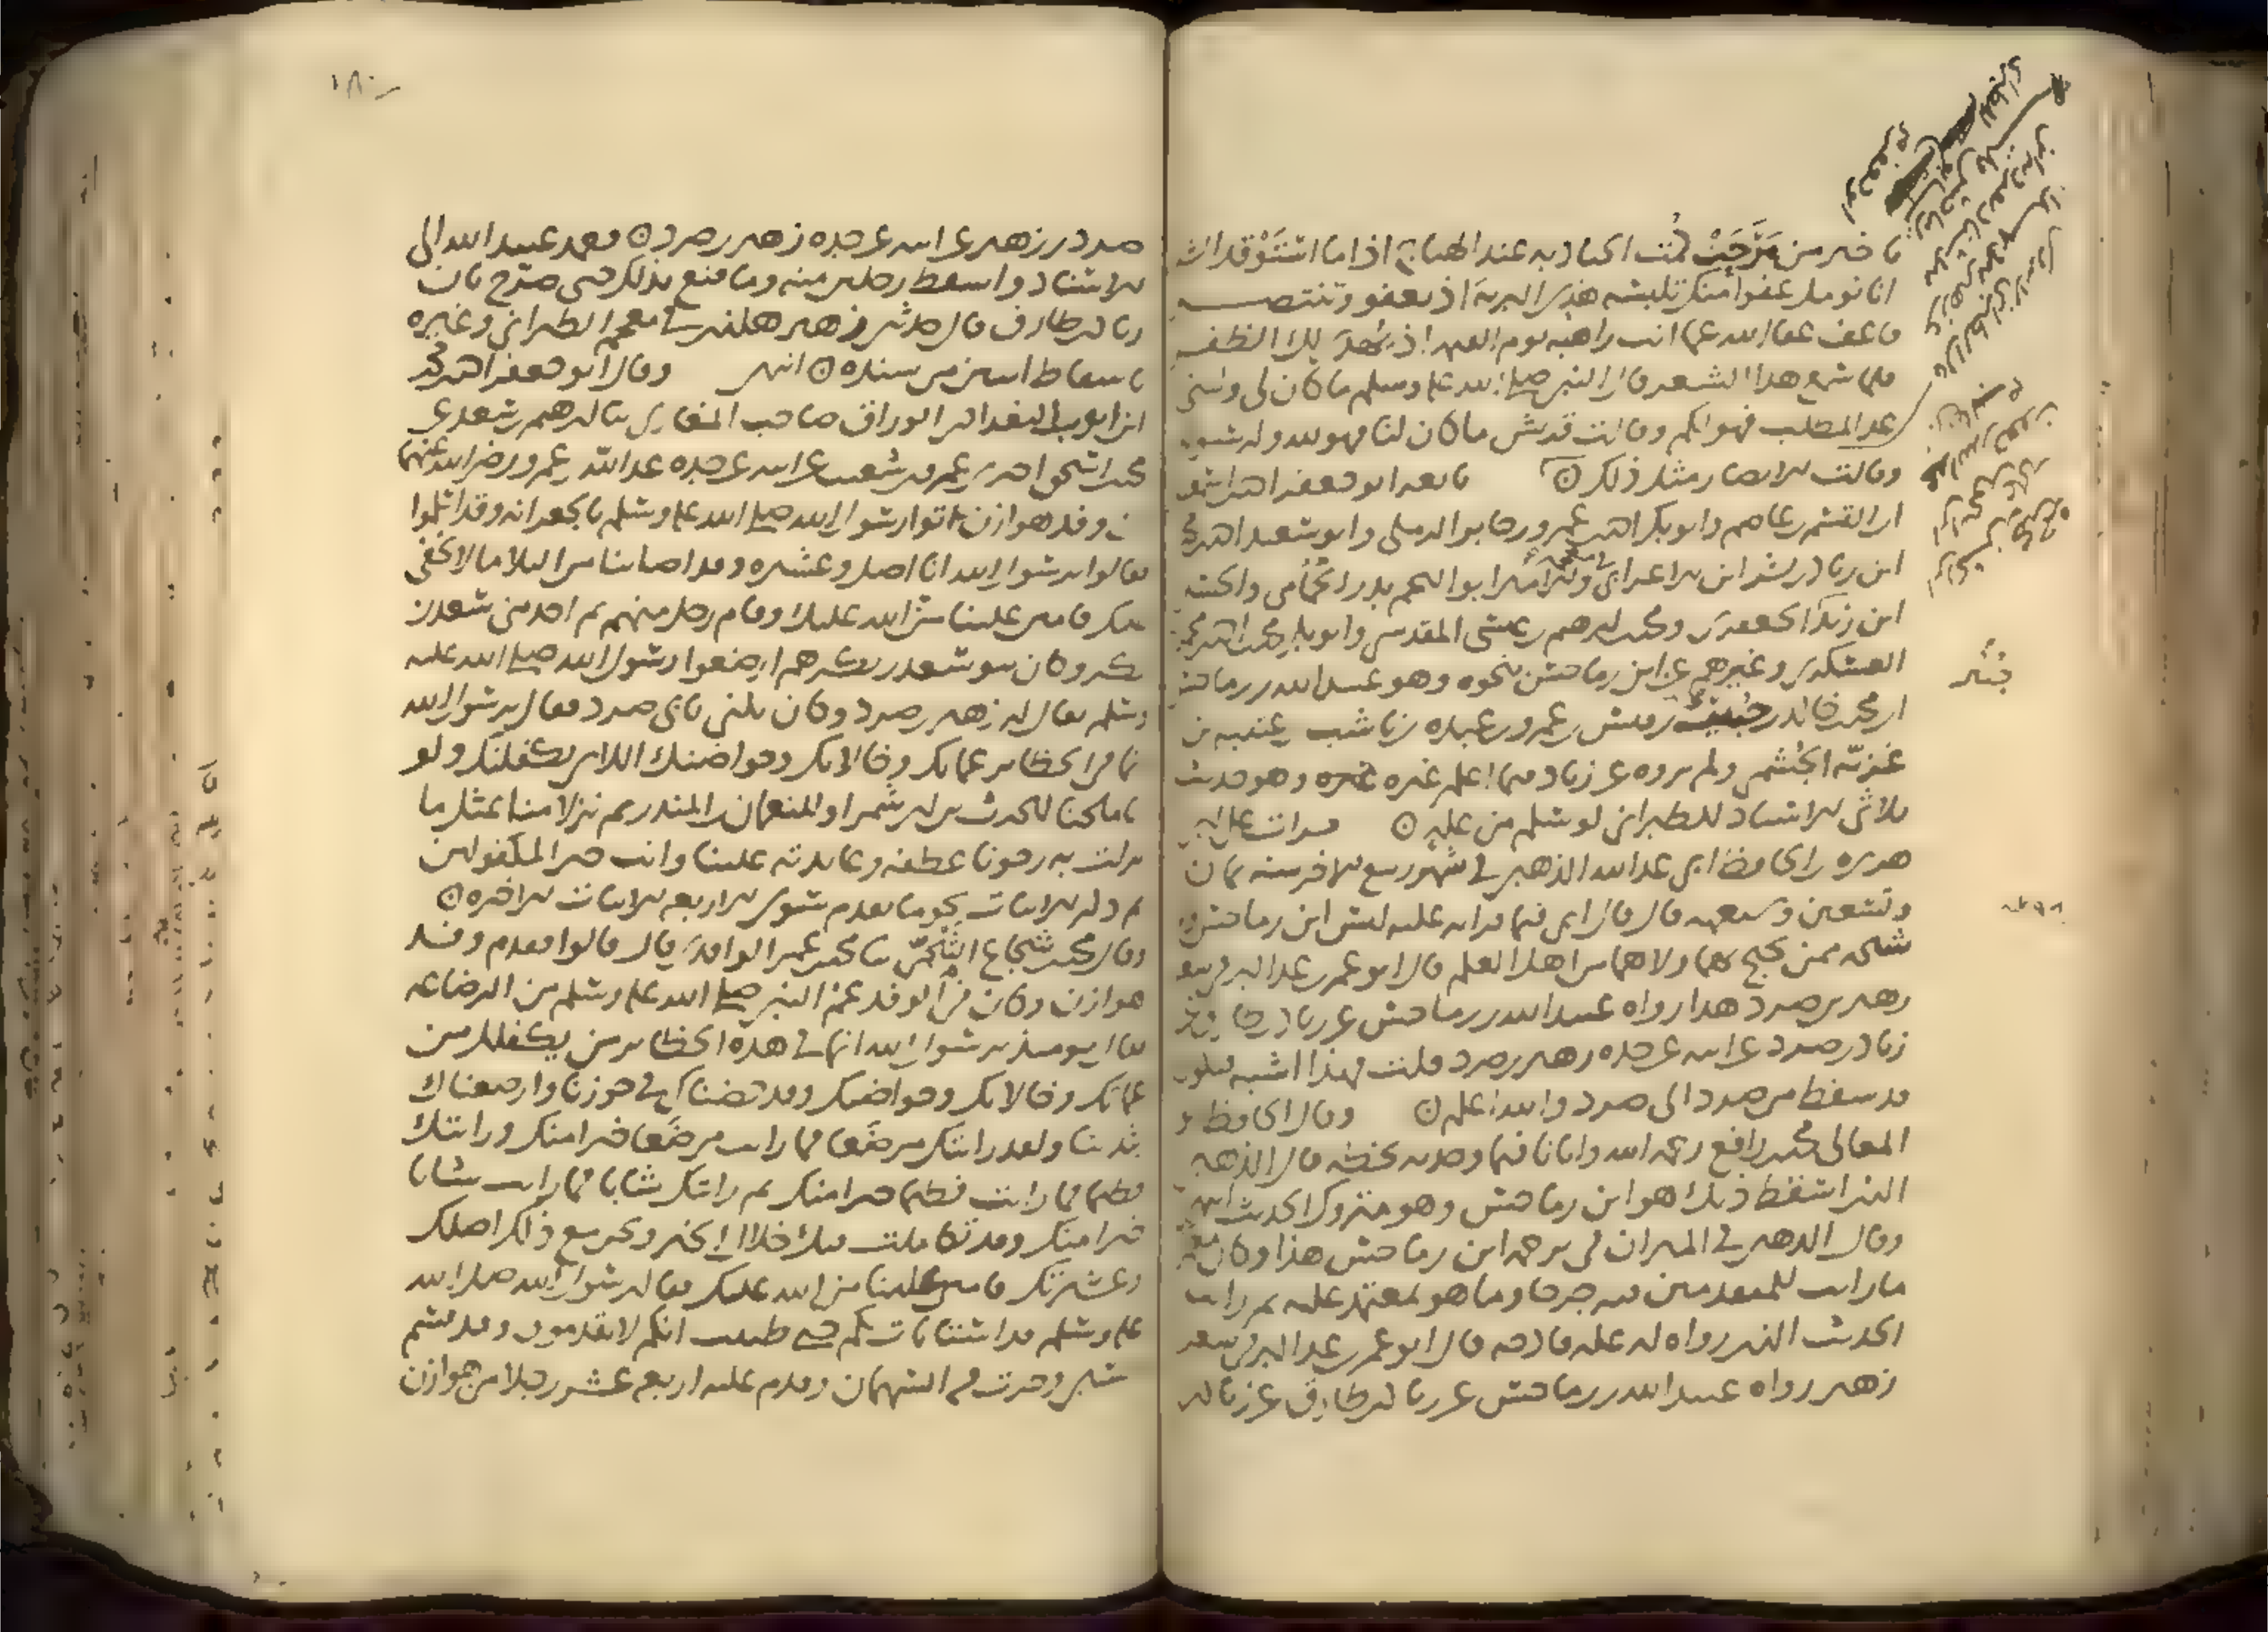 يا خير من مَرَحَتْ كُمْت الجياد به عند الهياج اذا ما استَوْقد الشرر
انا نومل عفوا منك تلبسه هذي البرية اذ تعفو وتنتصر
فاعف عفا الله عما انت راهبه يوم القيمة اذ يُهدى لك الظفر
فلما سمع هذا الشعر قال النبي صلى الله عليه وسلم ما كان لي ولبني
عبد المطلب فهو لكم وقالت قريش ما كان لنا فهو لله ولرسوله
وقالت الانصار مثل ذلك تابعه ابو جعفر احمد بن اسمعيل
ابن القسم بن عاصم وابو بكر احمد بن عمرو بن جابر الرملي وابو سعيد احمد بن محمد
ابن زياد بن بشر ابن الاعرابي ابو النجم بدر الحمامي والحسن
ابن زيد الجعفري ومحمد بن ابرهيم بن عيسى المقدسي وابو بكر محمد بن احمد بن محمويه
العسكري وغيرهم عن ابن رماحس نحوه وهو عبيد الله بن رماحس
ابن محمد بن خالد بن حبيب بن قيس بن عمرو بن عبده بن ناشب بن عتبه بن
غزيّه الجُشمي ولم يروه عن زياد فيما اعلم غيره وهو حديث
ثلاثي الاسناد للطبراني لو سلم من عله قرات على ابي
هريره ابن الحافظ ابي عبد الله الذهبي في شهر ربيع الاخر سنه ثمان
وتسعين وسبعمائه قال قال ابي فيما قراته عليه ليس ابن رماحس
ممن يحتج بهما ولا هما من اهل العلم قال ابو عمر بن عبد البر في
زهير بن صرد هذا رواه عبيد الله بن رماحس عن زياد بن طارق عن
زياد بن صرد عن ابيه عن جده زهير بن صرد قلت فهذا اشبه
قد سقط من صرد الى صرد والله اعلم وقال الحافظ ابو
المعالي محمد بن رافع رحمه الله وانا فيما وجدته بخطه قال الذهبي
الذي اسقط ذلك هو ابن رماحس وهو متروك الحديث انتهى
وقال الذهبي في الميزان في ترجمه ابن رماحس هذا وكان معمرا
ما رايت للمتقدمين فيه جرحا وما هو بمعتمد عليه ثم رايت
الحديث الذي رواه له عله قادحه قال ابو عمر بن عبد البر في شعر
زهير رواه عبيد الله بن رماحس عن زياد بن طارق عن زياد بن
٧٩٨
١٨٠
صرد بن زهير عن ابيه عن جده زهير بن صرد فعمد عبيد الله الى
الاسناد واسقط رجلين منه وما قنع بذلك حتى صرح بان
زياد بن طارق قال حدثني زهير هكذا في معجم الطبراني وغيره
باسقاط اسنين من سنده انتهى وقال ابو جعفر احمد بن محمد
ابن ايوب البغدادي الوراق صاحب المغازي ثنا ابرهيم بن سعد عن
محمد بن اسحق حدثني عمرو بن شعيب عن ابيه عن جده عبد الله بن عمرو رضي الله عنهما
ان وفد هوازن اتوا رسول الله صلى الله عليه وسلم بالجعرانه وقد اسلموا
فقالوا يرسول الله انا اصل وعشيره وقد اصابنا من البلا ما لا يخفى
عليك فامنن علينا من الله عليك وقام رجل منهم ثم احد بني سعد بن
بكر وكان بنو سعد بن بكر هم ارضعوا رسول الله صلى الله عليه
وسلم يقال له زهير بن صرد وكان يكنى بابي صرد فقال يرسول الله
انما في الحظاير عماتك وخالاتك وحواضنك اللاي يكفلنك ولو
انا ملحنا للحرث بن ابي شمر او للنعمان بن المنذر ثم نزلا منا بمثل ما
نزلت به رجونا عطفه وعايدته علينا وانت خير المكفولين
ثم ذكر الابيات بنحو ما تقدم سوى الاربعه الابيات الاخره
وقال محمد بن شجاع الثلجيّ ثنا محمد بن عمر الواقدي قال قالوا فقدم وفد
هوازن وكان في الوفد عم النبي صلى الله عليه وسلم من الرضاعه
فقال يوميذ يرسول الله انما في هذه الحظاير من يكفلك من
عماتك وخالاتك وحواضنك وقد حضناك في حجورنا وارضعناك
بثدينا ولقد رايتك مرضَعا فما رايت مرضَعا خيرا منك ورايتك
فطيما فما رايت فطيما خيرا منك ثم رايتك شابا فما رايت شابا
خيرا منك وقد تكاملت فيك خلال الخير ونحن مع ذلك اصلك
وعشيرتك فامنن علينا من الله عليك فقال رسول الله صلى الله
عليه وسلم قد استانيت بكم حتى ظننت انكم لا تقدمون وقد قسم
السبي وجرت فيه السهمان وقدم عليه اربعه عشر رجلا من هوازن